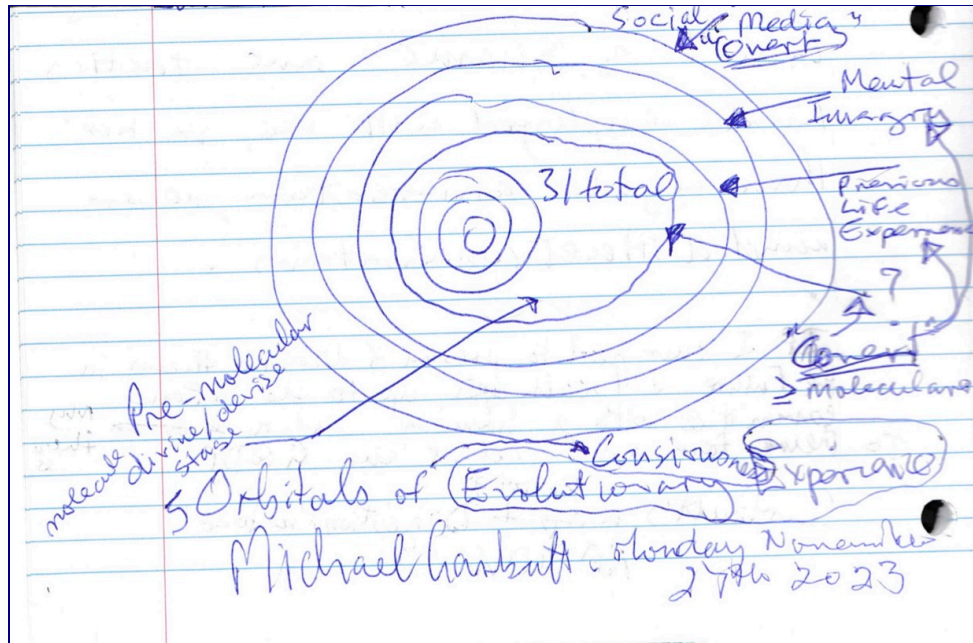 Social "Media"
"Overt"
Mental
Imagry
31 total
Previous
Life
Experience
?
Covert
≥ molecular
Pre-molecular
molecule divine/devise
stage
Consiousness
5 Orbitals of Evolutionary Experience
Michael Garbutt. Monday November
27th 2023